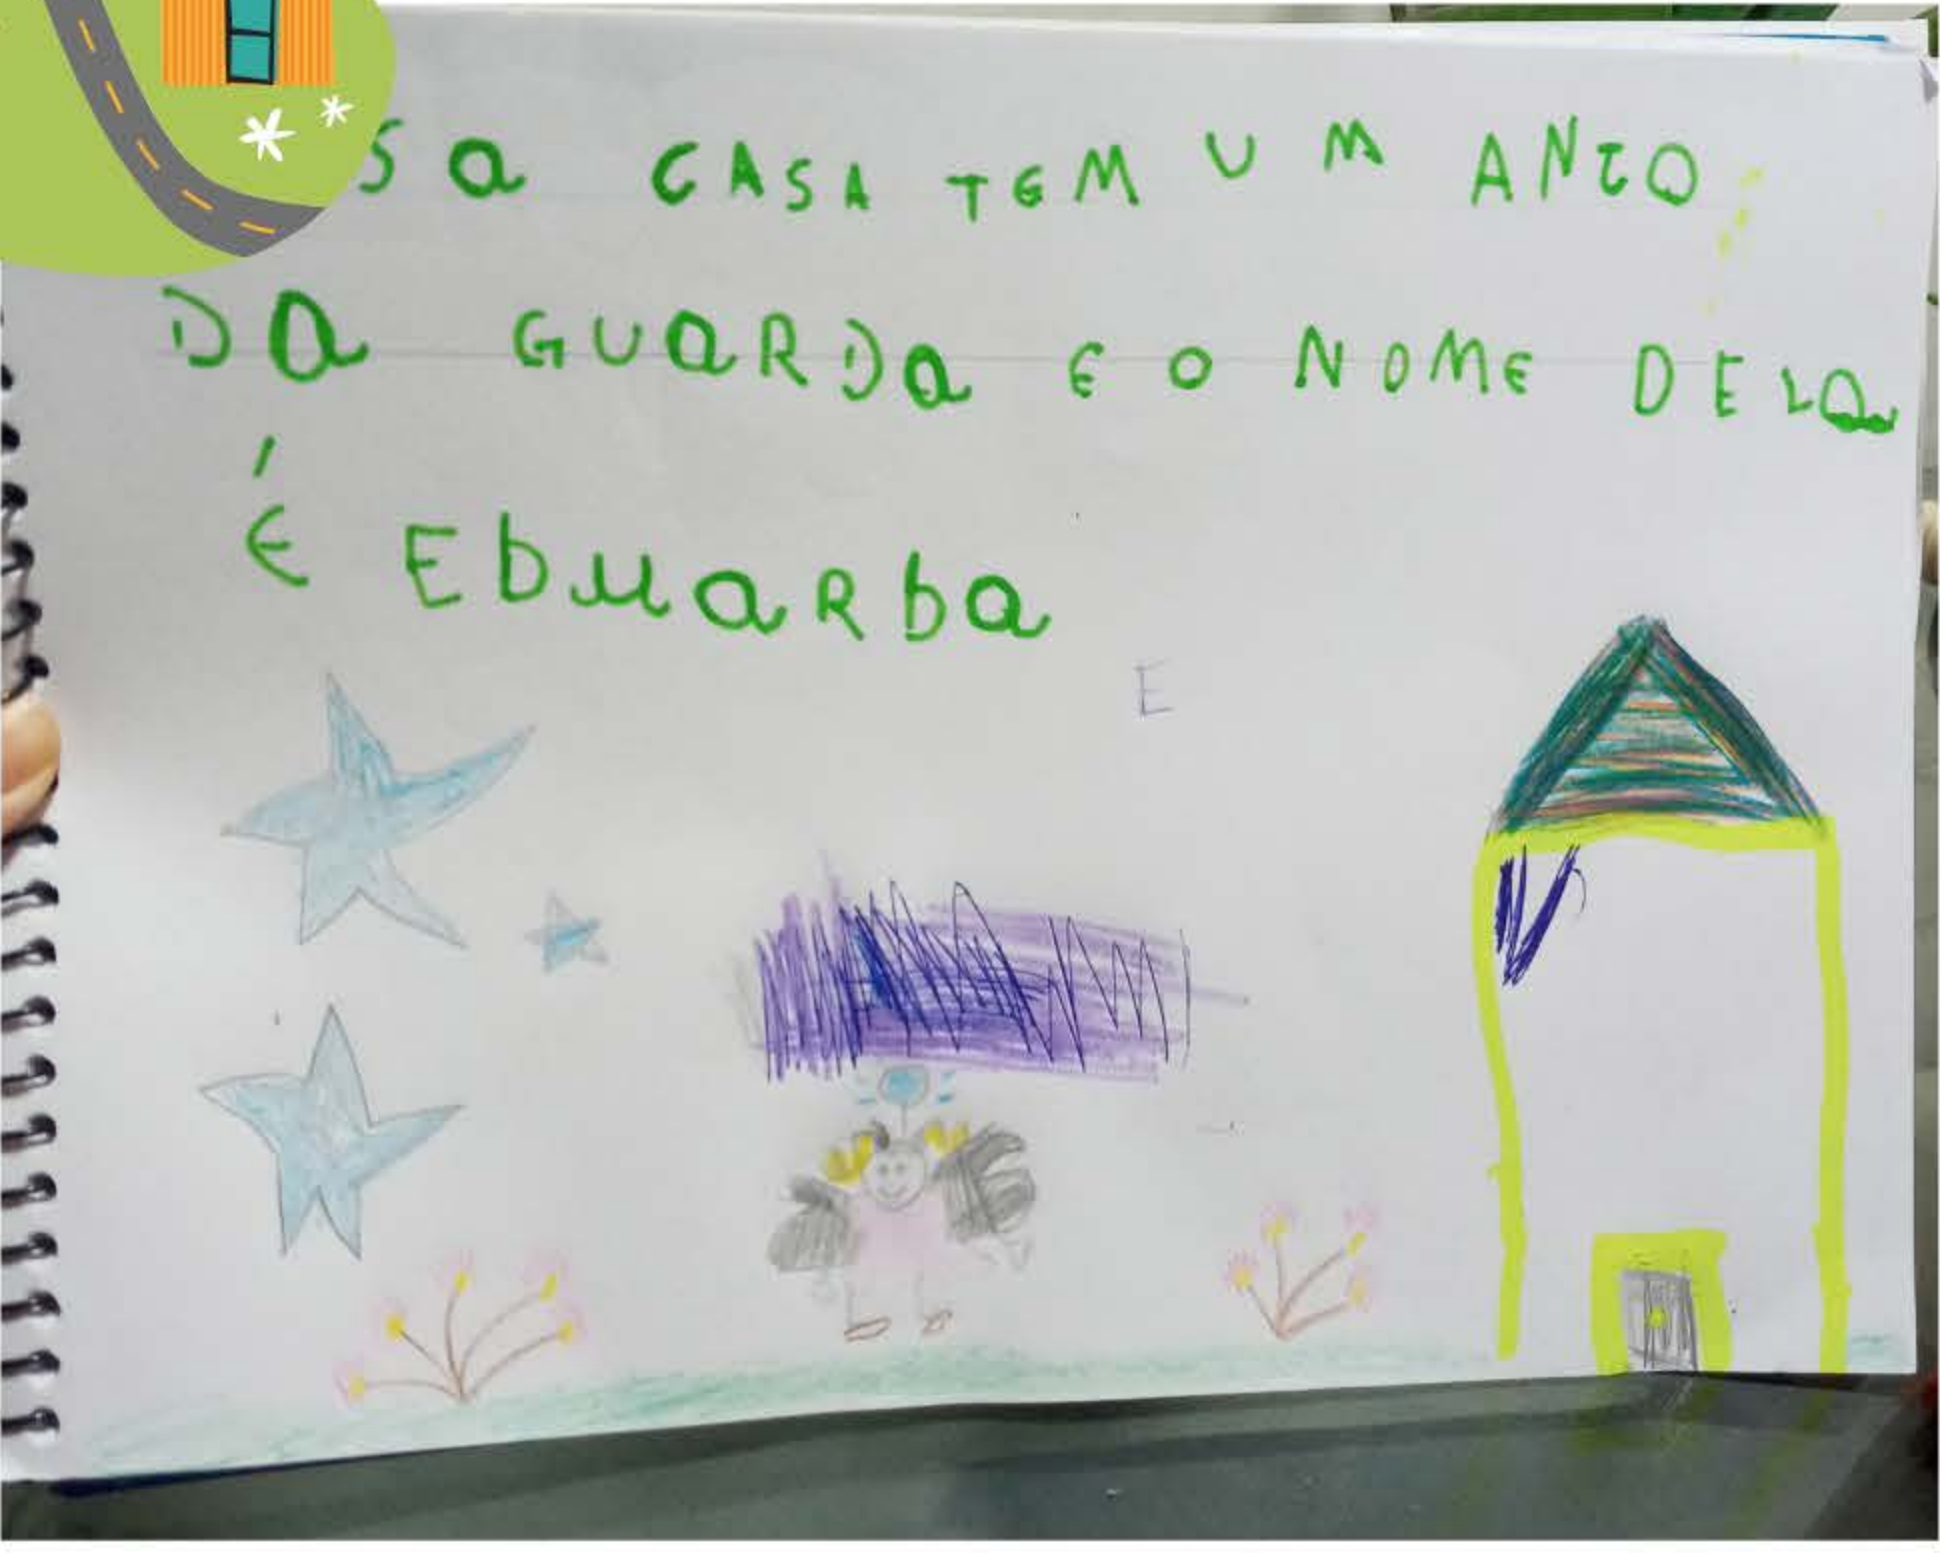 SA CASA TEM UM ANJO
DA GUARDA E O NOME DELA
É EbuARbA
E